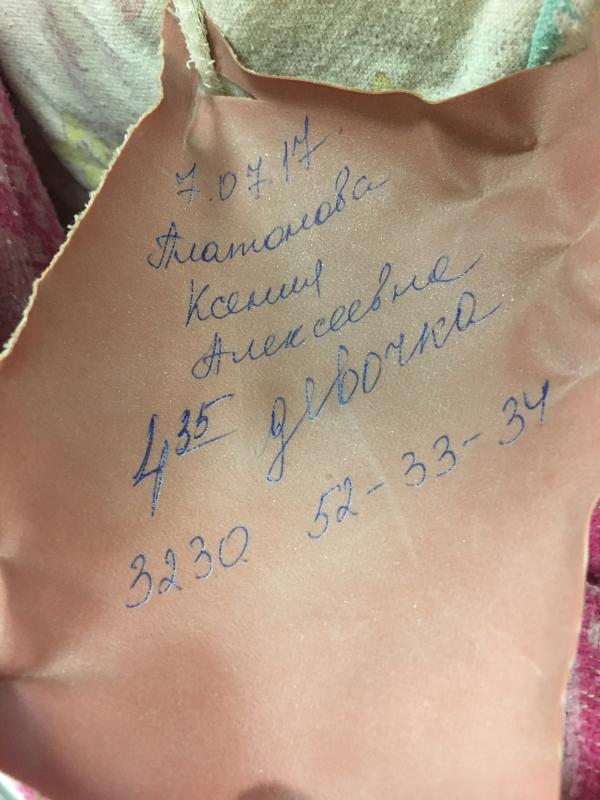 7.07.17.
Платонова
Ксения
Алексеевна
4 35 девочка
3230 52-33-34